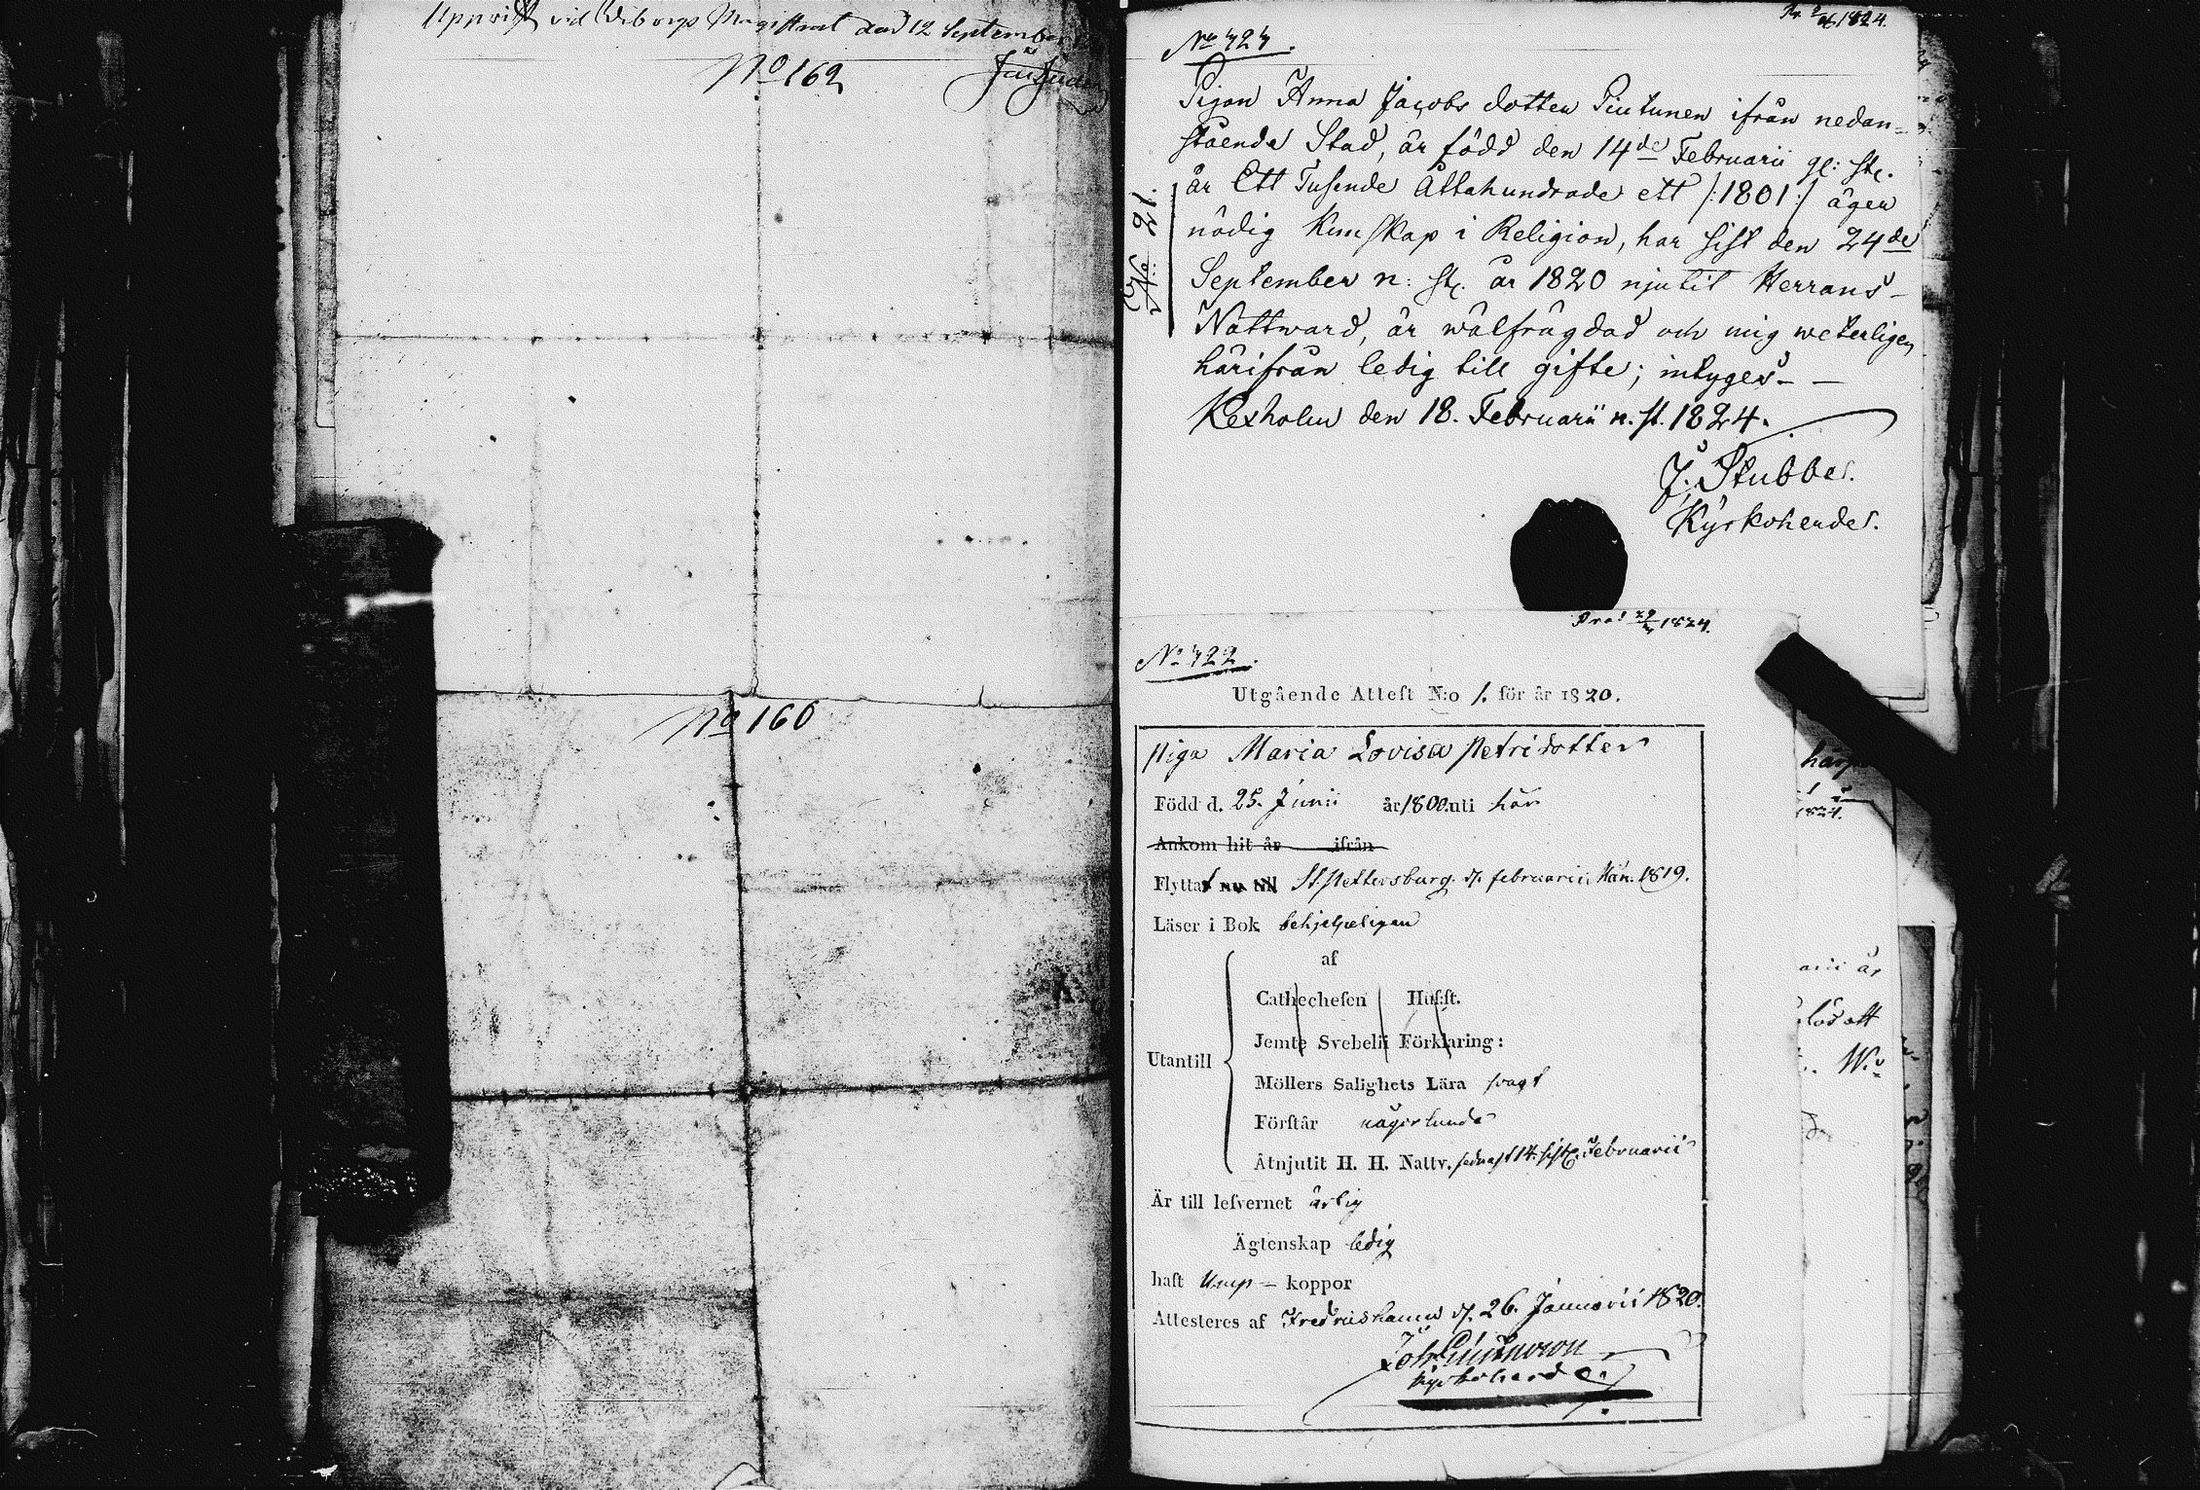 Uppvist vid Wiborgs Magistrat den 12 September
No 162
No 160
Pr. 1824.
No 424.
No: 21.
Pigan Anna Jacobs dotter Piutunen ifrån nedan-
stående Stad, är född den 14de Februarii gl: St.
år Ett Tusende Åttahundrade ett /:1801:/ äger
nödig Kunskap i Religion, har sist den 24de
September n: St. år 1820 njutit Herrans
Nattward, är wälfrägdad och mig weterligen
härifrån ledig till gifte; intyges
Kexholm den 18. Februarii n. st. 1824.
J. Stubbe.
Kyrkoherde.
1824.
No 422.
Utgående Attest N:o 1. för år 1820.
Piga Maria Lovisa Petridotter
Född d. 25. Junii år 1800.nti här
Ankom hit år ifrån
Flyttat nu till St. Pettersburg d. februarii Mån. 1819.
Läser i Bok behjelpeligen
af
Cathechesen Hus:st.
Jemte Svebelii Förklaring:
Utantill
Möllers Salighets Lära svagt
Förstår någorlunda
Åtnjutit H. H. Nattv. sednast 14. sistl. Februarii
Är till lefvernet ärlig
Ägtenskap ledig
haft Ymp- koppor
Attesteres af Fredricshamn d. 26. Januarii 1820.
Kyrkoherde.
1824.